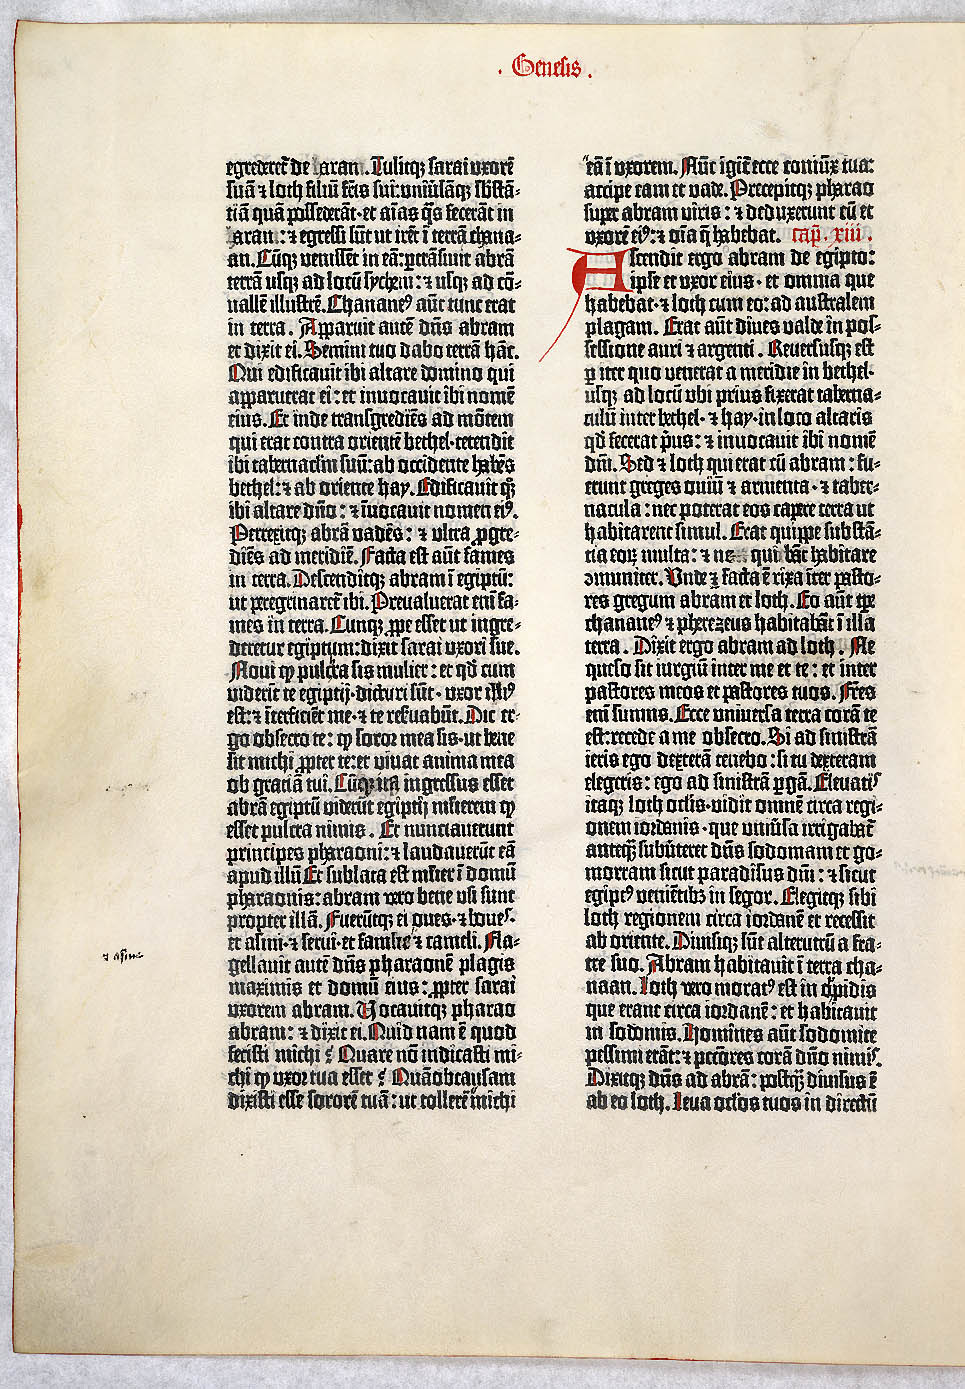 . Genesis .
egrederet̄ de haran. Tulitqꝫ sarai uxorē
suā ⁊ loth filiū fr̄is sui: univ̄sāqꝫ sb̄stā-
tiā quā possederāt · et aīas q̄s fecerāt in
aran: ⁊ egressi sūt ut irēt ī terrā chana-
an. Cūqꝫ venissēt in eā: ꝑtrāsivit abrā
terrā usqꝫ ad locū sychem: ⁊ usqꝫ ad cō-
vallē illustrē. Chananeꝰ aūt tunc erat
in terra. Apparuit autē dn̄s abram
et dixit ei. Semini tuo dabo terrā hāc.
Qui edificavit ibi altare domino qui
apparuerat ei: et invocavit ibi nomē
eius. Et inde transgrediēs ad mōtem
qui erat contra orientē bethel · tetendit
ibi tabernaclm̄ suū: ab occidente habēs
bethel: ⁊ ab oriente hay. Edificavit qꝫ
ibi altare dn̄o: ⁊ īvocavit nomen eiꝰ.
Perrexitqꝫ abrā vadēs: ⁊ ultra ꝓgre-
diēs ad meridiē. Facta est aūt fames
in terra. Descenditqꝫ abram ī egiptū:
ut peregrinaret̄ ibi. Prevaluerat eni fa-
mes in terra. Cunqꝫ ꝓpe esset ut ingre-
deretur egiptum: dixit sarai uxori sue.
Novi ꝙ pulcra sis mulier: et qd̄ cum
viderīt te egiptij · dicturi sūt · uxor illiꝰ
est: ⁊ īterficiēt me · ⁊ te reẜvabūt. Dic er-
go obsecro te: ꝙ soror mea sis · ut bene
sit michi ꝓpter te: et vivat anima mea
ob gratiā tui. Cūqꝫ ita ingressus esset
abrā egiptū viderūt egiptij ml̄ierem ꝙ
esset pulcra nimis. Et nunciaverunt
principes pharaoni: ⁊ laudaverūt eā
apud illū Et sublata est ml̄ier ī domū
pharaonis: abram vero bene usi sunt
propter illā. Fuerūtqꝫ ei oves · ⁊ boves
et asini · ⁊ servi · et famule ⁊ cameli. Fla-
⁊ asine
gellavit autē dn̄s pharaonē plagis
maximis et domū eius: ꝓpter sarai
uxorem abram. Vocavitqꝫ pharao
abram: ⁊ dixit ei. Quid nam ē quod
fecisti michi? Quare nō indicasti mi-
chi ꝙ uxor tua esset? Quāobcausam
dixisti esse sororē tuā: ut tollerē michi
eā ī uxorem. Nūc igit̄ ecce coniūx tua:
accipe eam et vade. Precepitqꝫ pharao
super abram viris: ⁊ deduxerunt eū et
uxorē eiꝰ: ⁊ oīa q̄ habebat. cap̄. xiii.
Ascendit ergo abram de egipto:
ipse et uxor eius · et omnia que
habebat · ⁊ loth cum eo: ad australem
plagam. Erat aūt dives valde in pos-
sessione auri ⁊ argenti. Reversusqꝫ est
ꝑ iter quo venerat a meridie in bethel ·
usqꝫ ad locū ubi prius fixerat taberna-
culū inter bethel · ⁊ hay · in loco altaris
qd̄ fecerat pⁱus: ⁊ invocavit ibi nomē
dn̄i. Sed ⁊ loth qui erat cū abram: fu-
erunt greges oviū ⁊ armenta · ⁊ taber-
nacula: nec poterat eos capere terra ut
habitarent simul. Erat quippe substā-
tia eoꝝ multa: ⁊ ne qui bāt habitare
ↄmuniter. Unde ⁊ facta ē rixa īter pasto-
res gregum abram et loth. Eo aūt tp̄e
chananeꝰ ⁊ pherezeus habitabāt ī illa
terra. Dixit ergo abram ad loth. Ne
queso sit iurgiū inter me et te: et inter
pastores meos et pastores tuos. Fr̄es
eni sumus. Ecce universa terra corā te
est: recede a me obsecro. Si ad sinistrā
ieris ego dexterā tenebo: si tu dexteram
elegeris: ego ad sinistrā ꝑgā. Elevatis
itaqꝫ loth oclis · vidit omnē circa regi-
onem iordanis · que univ̄sa irrigabat̄
anteqꝫ subverteret dn̄s sodomam et go-
morram sicut paradisus dn̄i: ⁊ sicut
egiptꝰ venīetibꝫ in segor. Elegitqꝫ sibi
loth regionem circa iordanē et recessit
ab oriente. Divisiqꝫ sūt alterutrū a fra-
tre suo. Abram habitavit ī terra cha-
naan. Loth vero moratꝰ est in oppidis
que erant circa iordanē: et habitavit
in sodomis. Homines aūt sodomite
pessimi erāt: ⁊ pctōres corā dn̄o nimis.
Dixitqꝫ dn̄s ad abrā: postqꝫ divisus ē
ab eo loth. Leva oclos tuos in directū